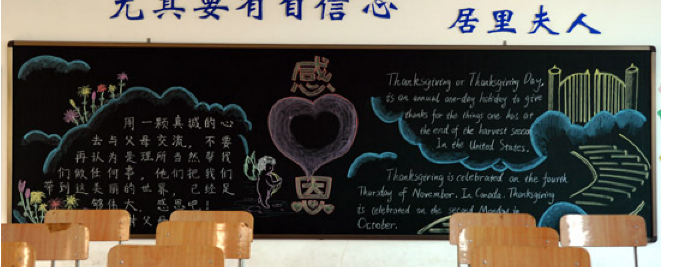 尤其要有自信心
居里夫人
用一颗真诚的心
去与父母交流，不要
再认为是理所当然帮我
们做任何事，他们把我们
带到这美丽的世界，已经足
够伟大，感恩吧！
父母
感
恩
Thanksgiving or Thanksgiving Day,
is an annual one-day holiday to give
thanks for the things one has at
the end of the harvest season
In the United States.
Thanksgiving is celebrated on the fourth
Thursday of November. In Canada. Thanksgiving
is celebrated on the second Monday in
October.